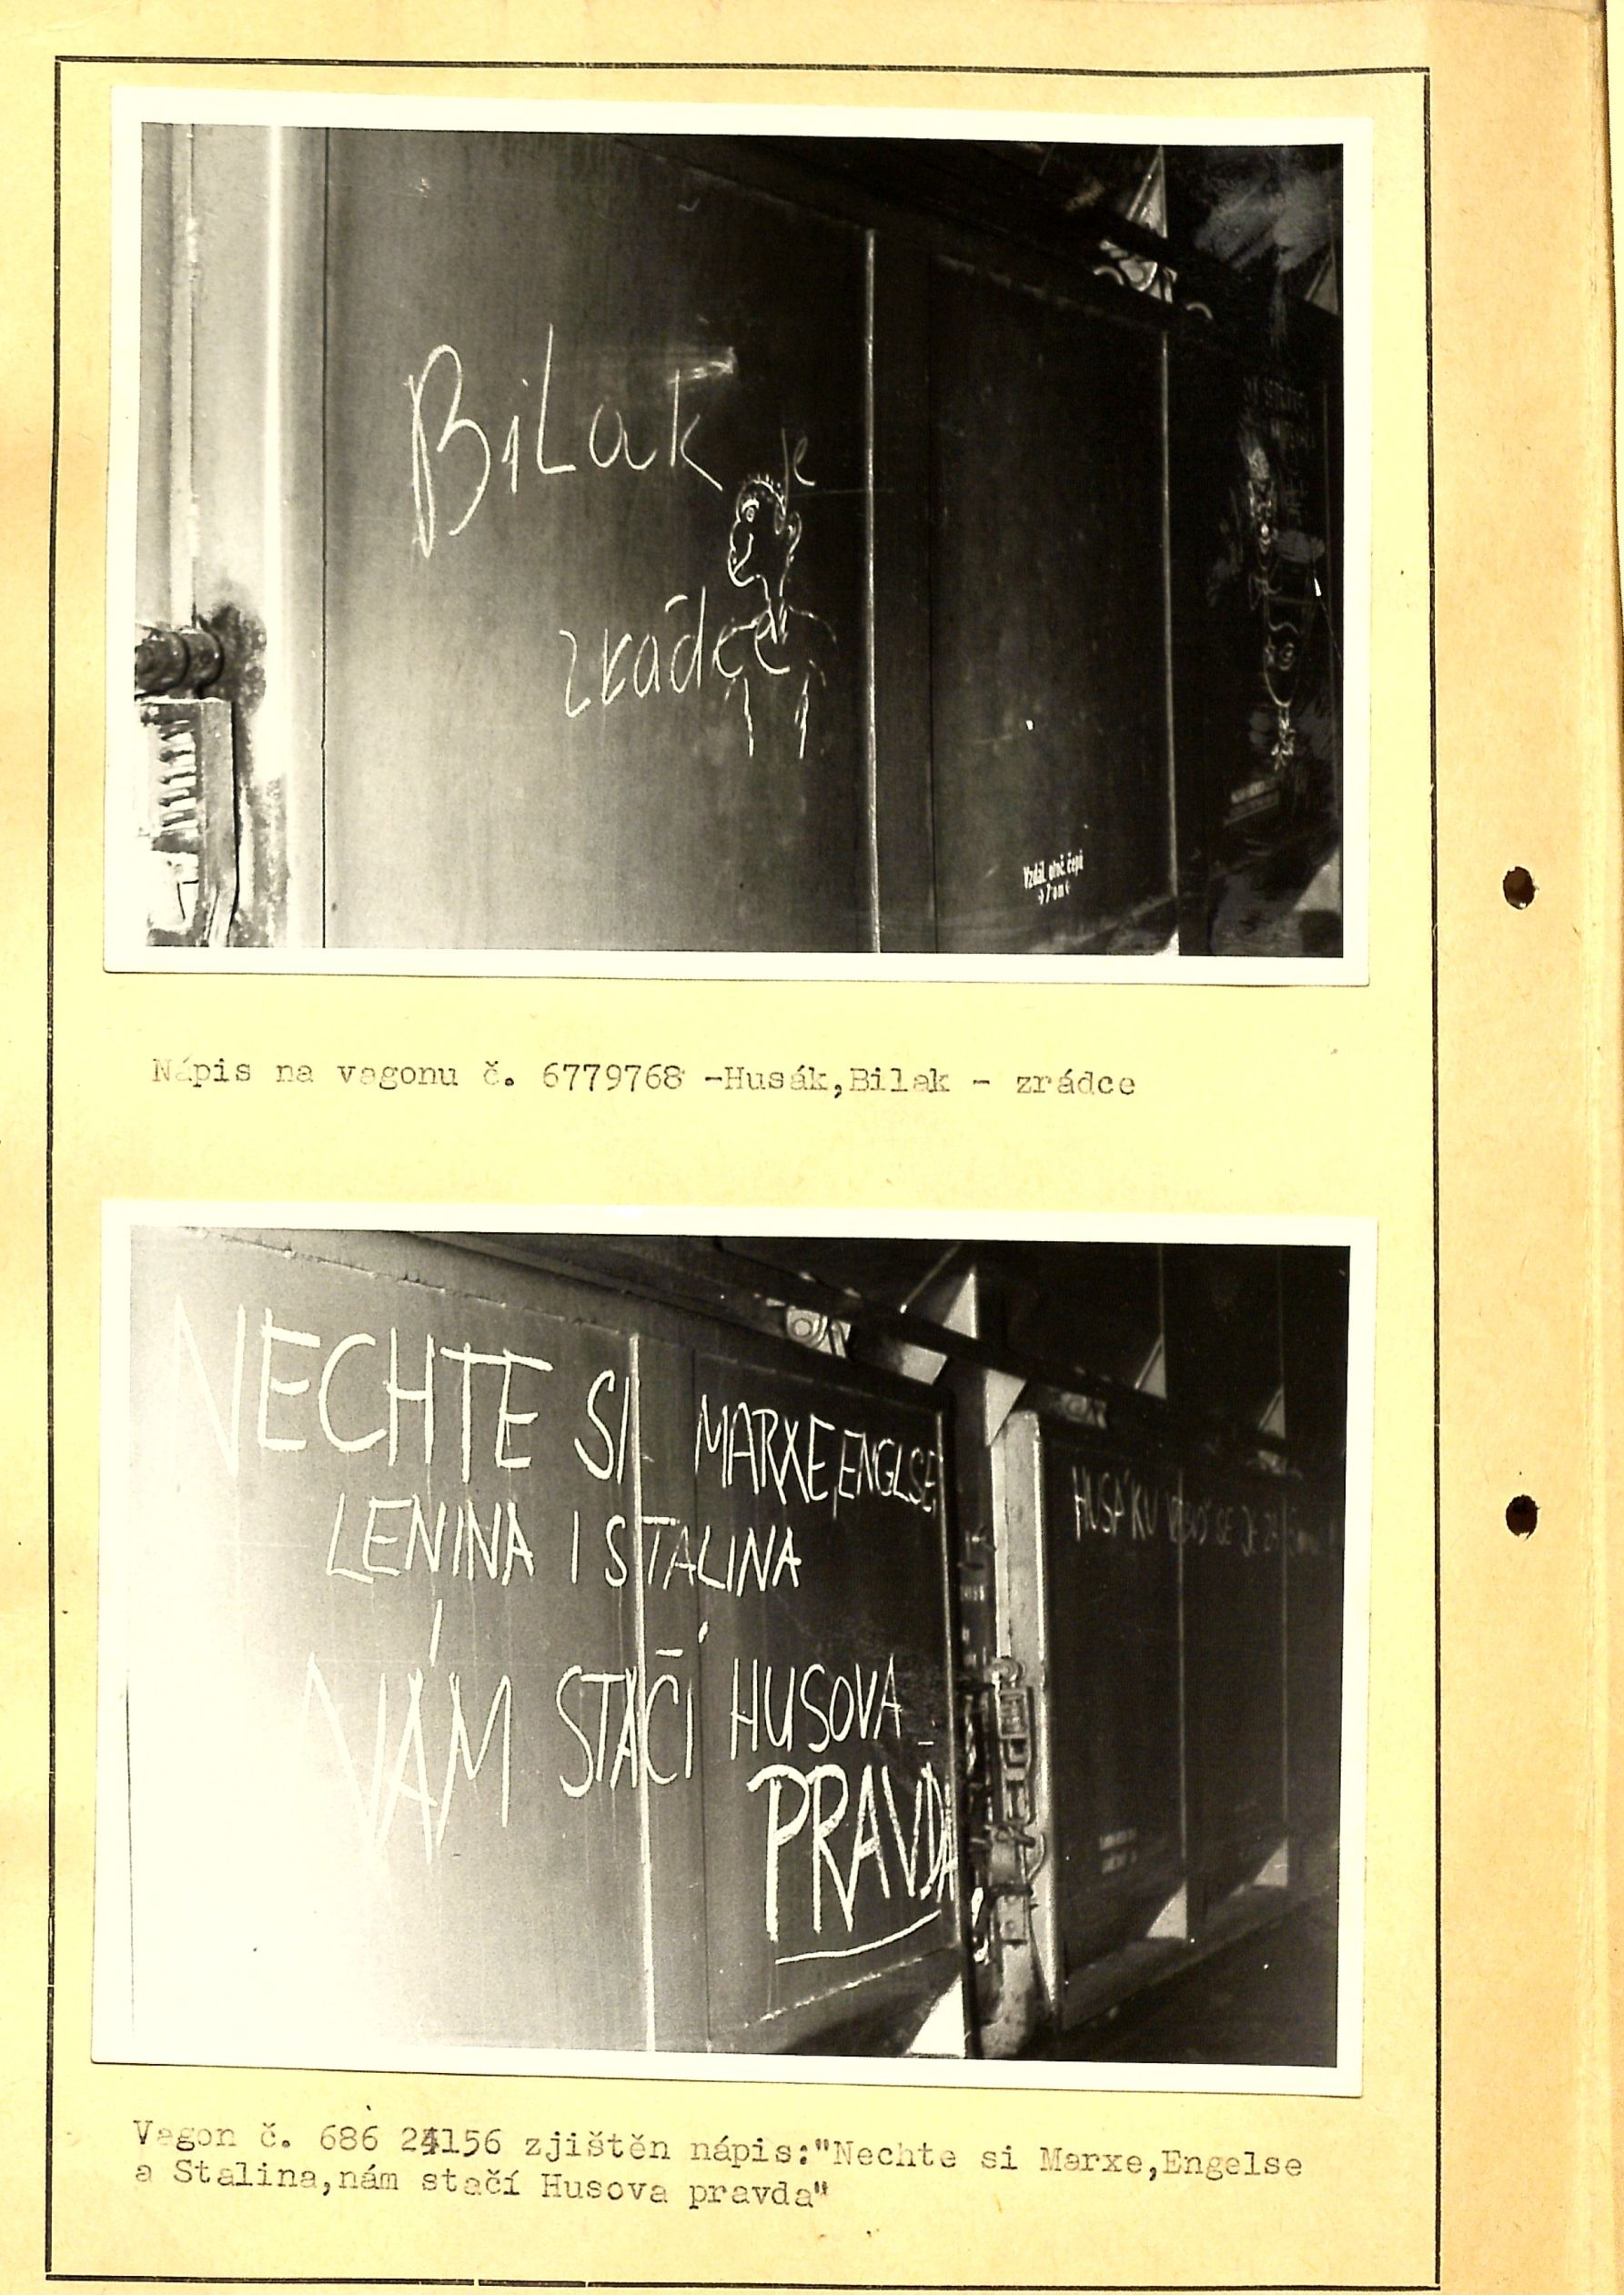 BiLak
je
zrádce
Vzdál. otoč. čepů
Nápis na vagonu č. 6779768 -Husák,Bilak - zrádce
NECHTE SI MARXE, ENGLSE,
LENINA I STALINA
NÁM STAČÍ HUSOVA
PRAVDA
HUSÁKU
Vagon č. 686 24156 zjištěn nápis:"Nechte si Marxe,Engelse
a Stalina,nám stačí Husova pravda"